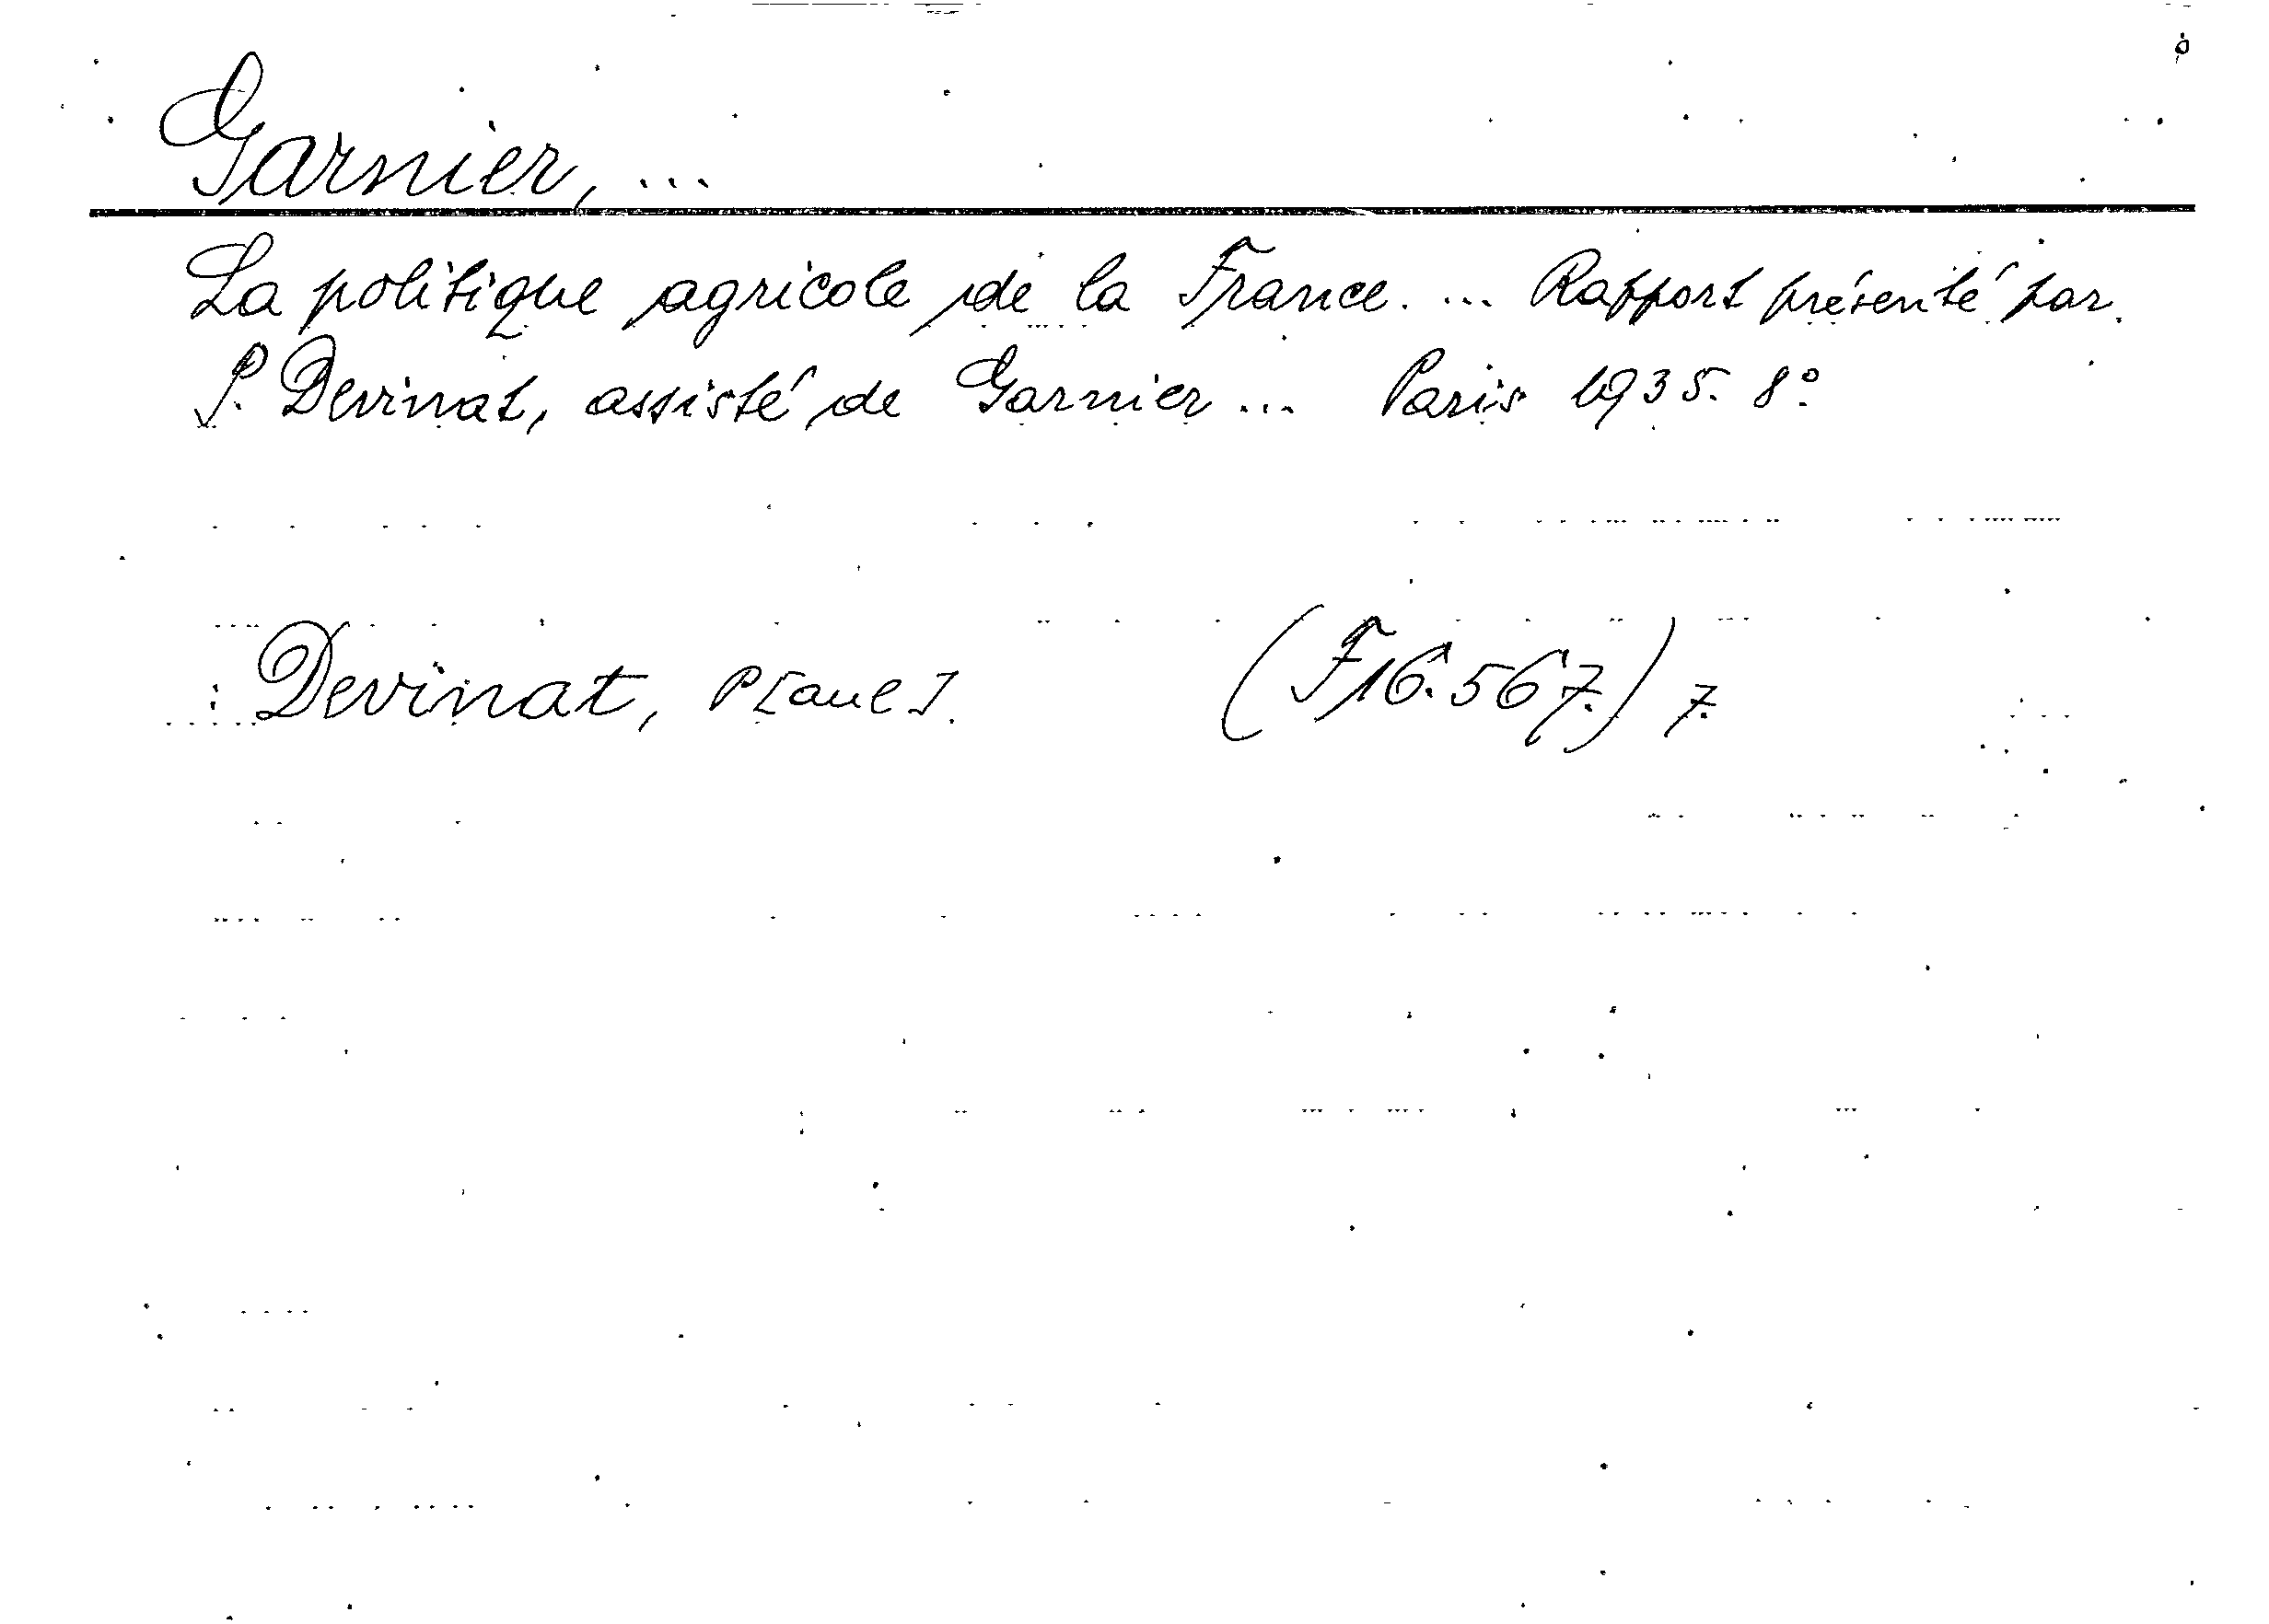 Garnier, ...
La politique agricole de la France. ... Rapport présenté par
P. Devinat, assisté de Garnier ... Paris 1935. 8°.
Devinat, P[aul]. (F16.567.) 7.